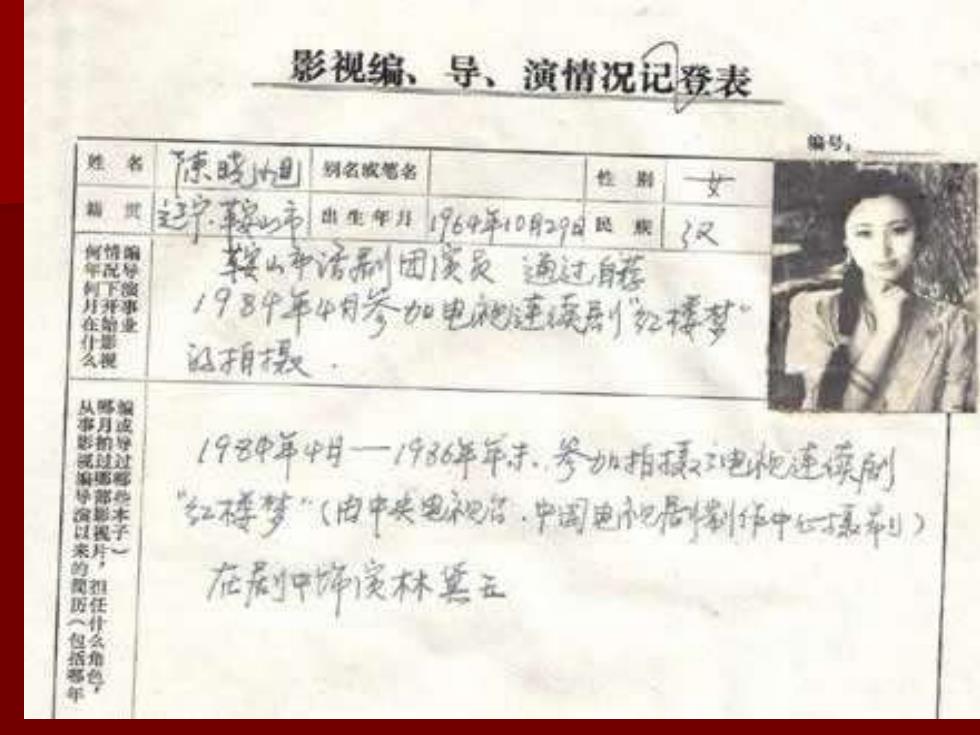 影视编、导、演情况记登表
编号：
姓名 陈晓旭 别名或笔名 性别 女
籍贯 辽宁.鞍山市 出生年月 1964年10月29日 民族 汉
何年何月在什么
情况下开始影视
编导演事业
鞍山市话剧团演员 通过自荐
1984年4月参加电视连续剧“红楼梦”
的拍摄.
从事影视编导演以来的简历（包括哪年
哪月拍过哪部影视片，担任什么角色，
编或导过哪些本子）
1984年4月—1986年年末.参加拍摄了电视连续剧
“红楼梦”（由中央电视台.中国电视剧制作中心摄制）
在剧中饰演林黛玉